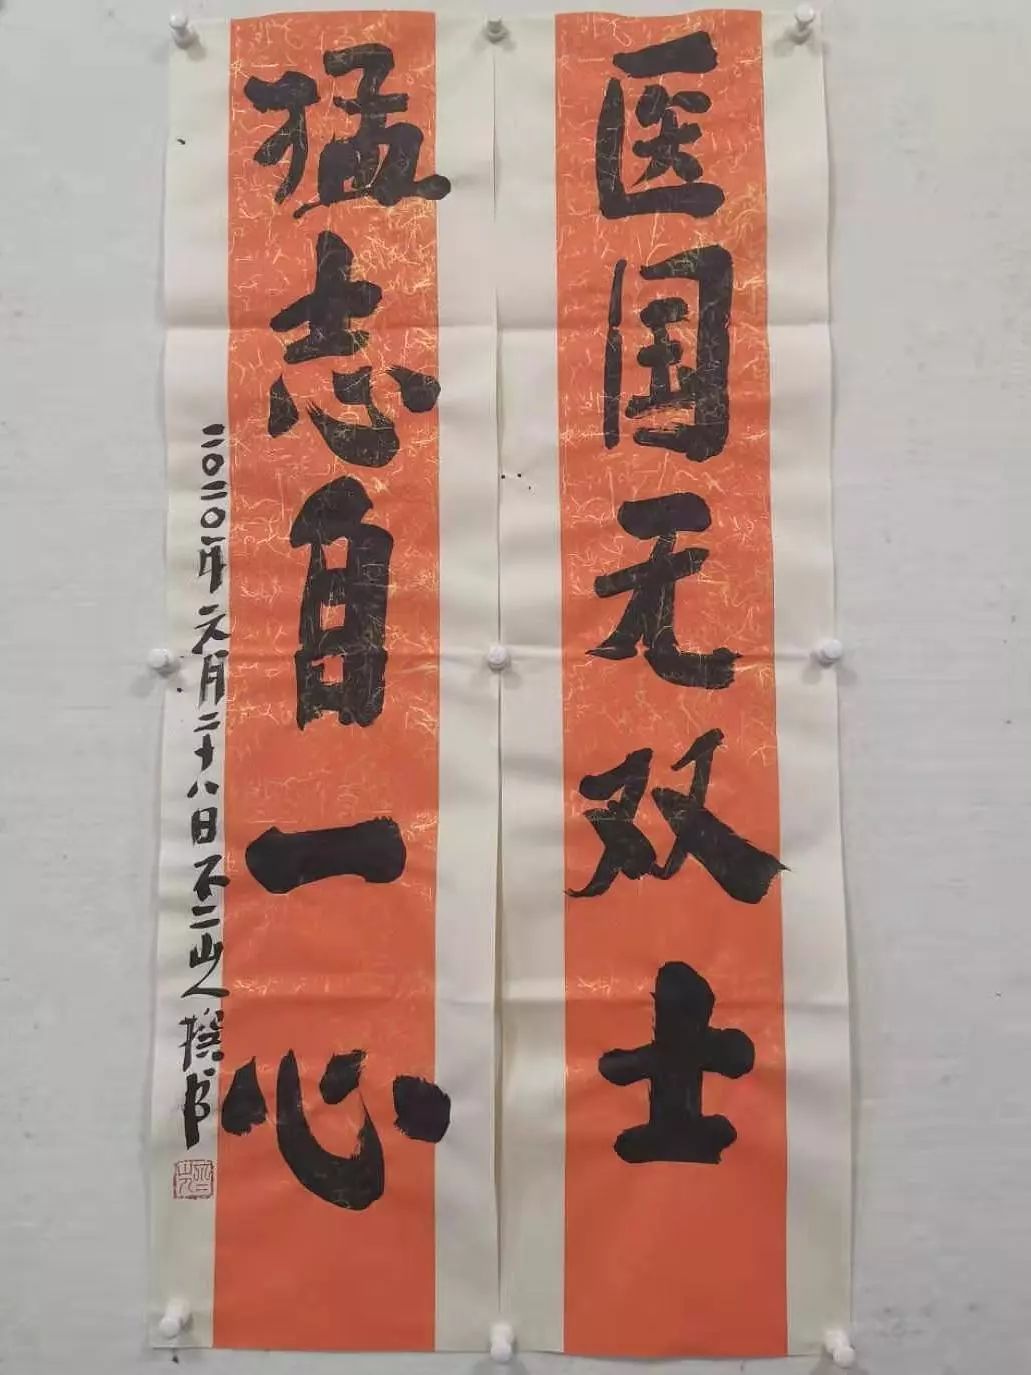 医国无双士
猛志自一心
二〇二〇年元月二十八日不二山人撰书